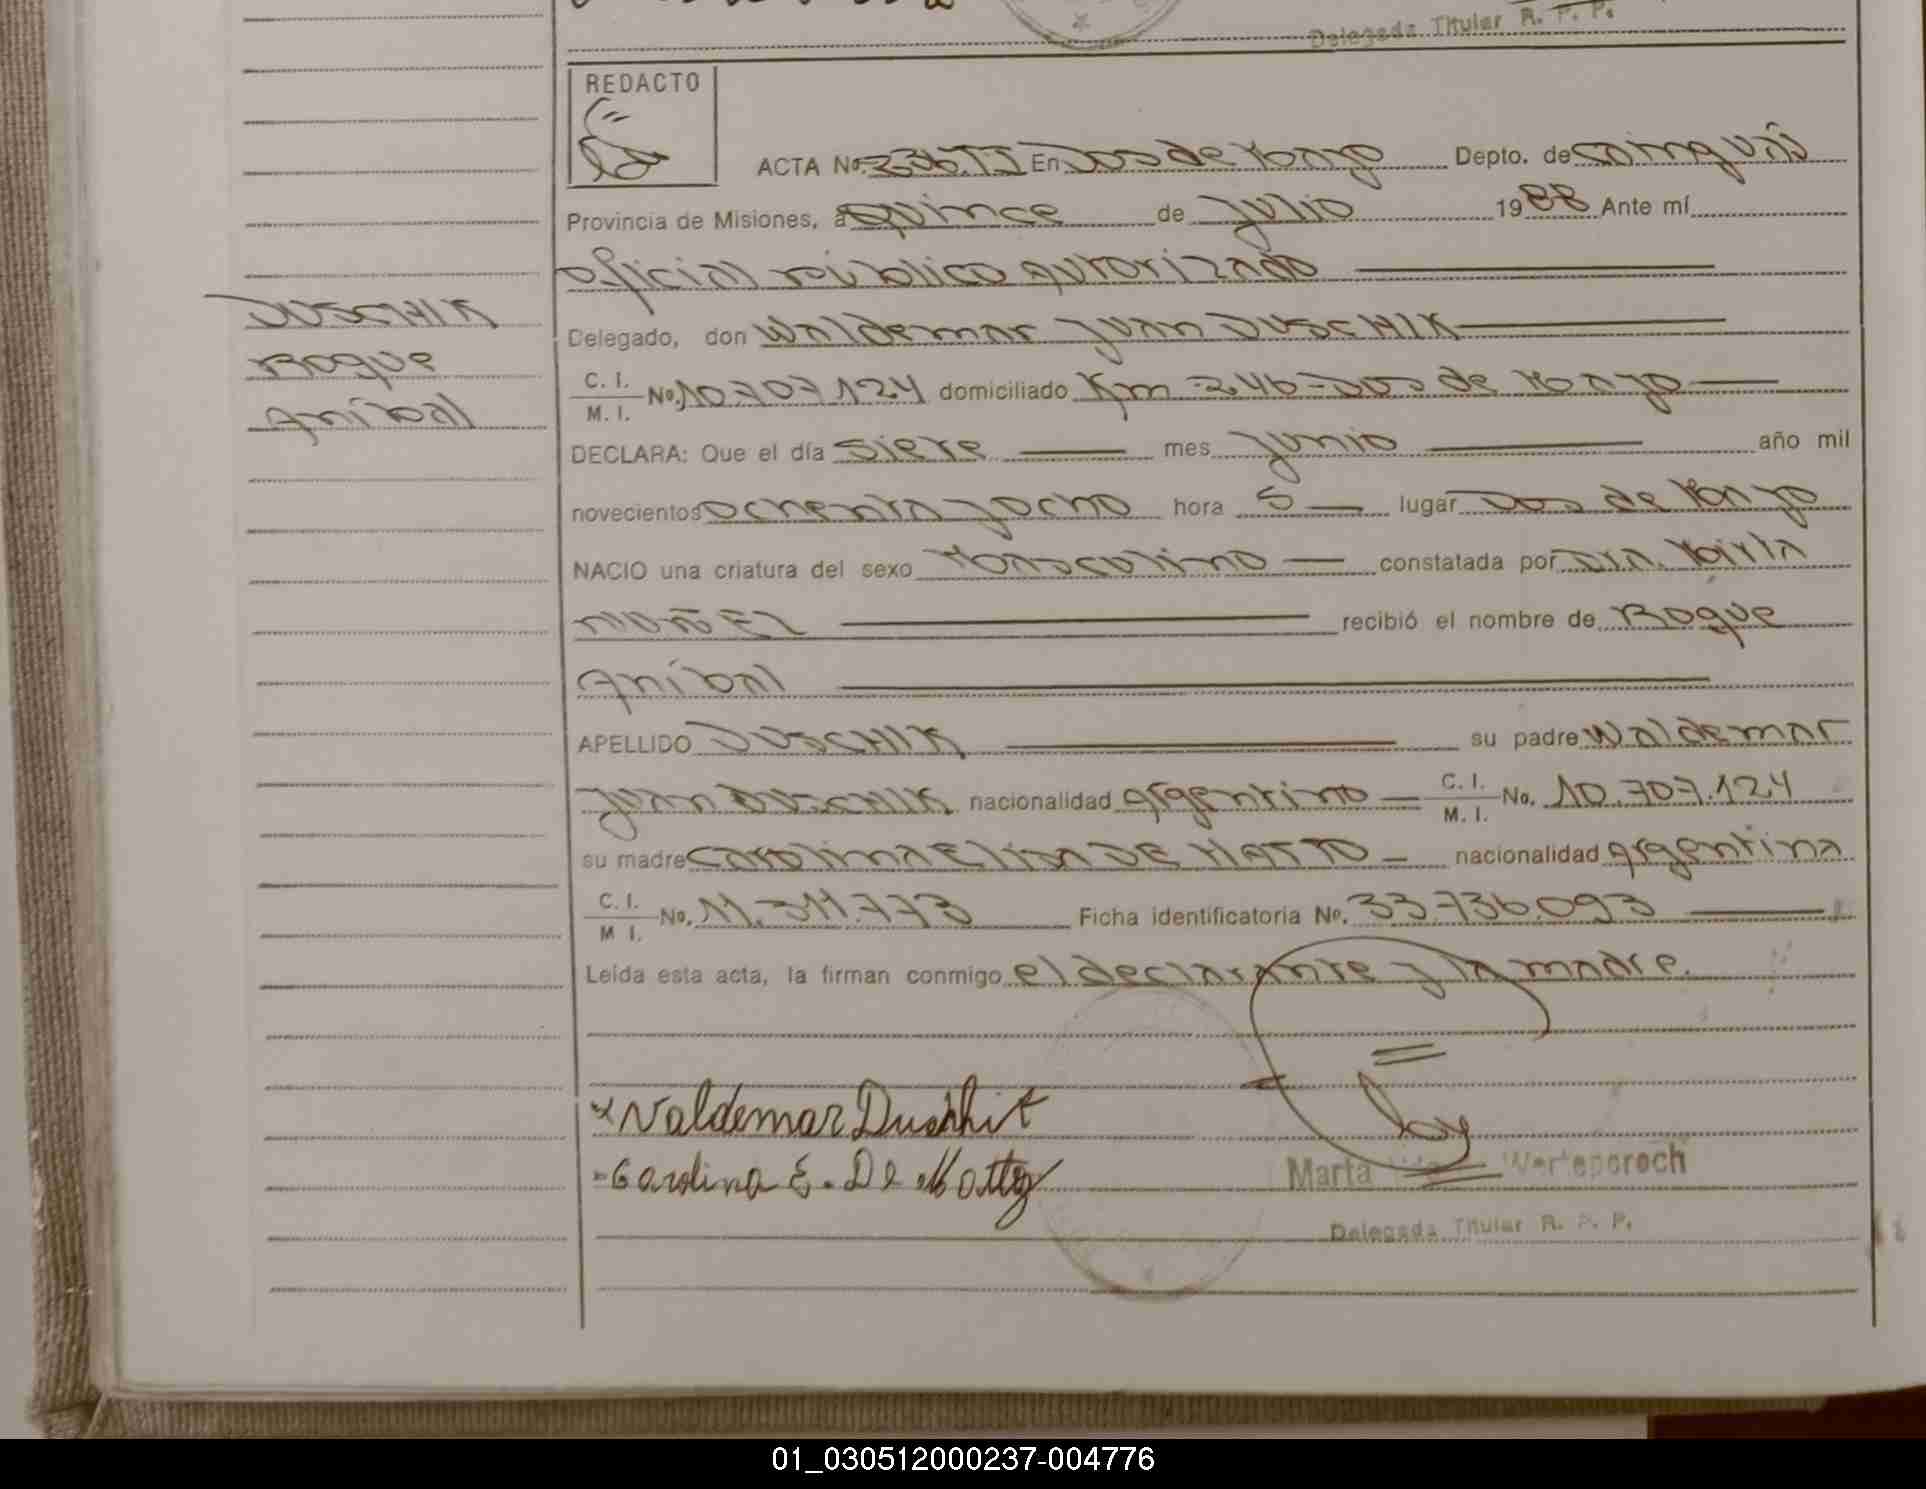 Delegada Titular R. P. P.
REDACTO
ACTA No. 236.TI En Dos de Mayo Depto. de Cainguás
Provincia de Misiones, a quince de Julio 1988 Ante mí
oficial público autorizado
Delegado, don Waldemar Juan DUSCHIK
DUSCHIK
Roque
Anibal
C. I.
M. I. No. 10.707.124 domiciliado Km 246-Dos de Mayo
DECLARA: Que el día siete mes Junio año mil
novecientos ochenta y ocho hora 5 lugar Dos de Mayo
NACIO una criatura del sexo Masculino constatada por Dra. Mirta
recibió el nombre de Roque
Anibal
APELLIDO DUSCHIK su padre Waldemar
Juan DUSCHIK nacionalidad argentino C. I.
M. I. No. 10.707.124
su madre Carolina Elisa DE MATTO nacionalidad argentina
C. I.
M I. No. 11.311.773 Ficha identificatoria No. 33.736.093
Leída esta acta, la firman conmigo el declarante y la madre.
Waldemar Duschik
Carolina E. De Matto
Marta Werteporoch
Delegada Titular R. P. P.
01_030512000237-004776